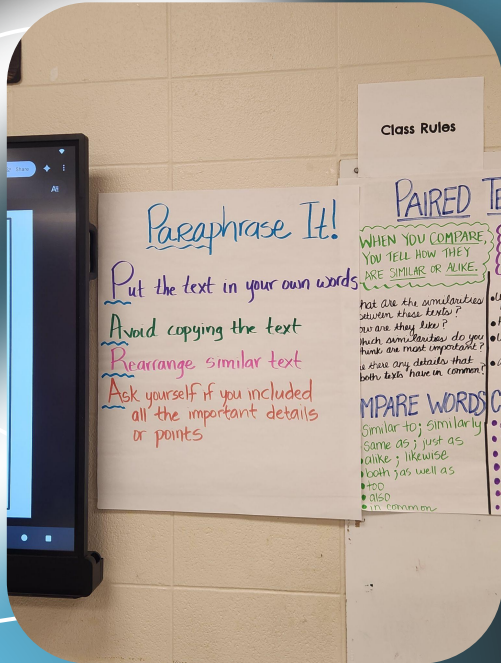 Share
Class Rules
Paraphrase It!
Put the text in your own words
Avoid copying the text
Rearrange similar text
Ask yourself if you included
all the important details
or points
PAIRED
WHEN YOU COMPARE,
YOU TELL HOW THEY
ARE SIMILAR OR ALIKE.
hat are the similarities
between these texts?
ow are they like?
hich similarities do you
think are most important?
there any details that
both texts have in common?
MPARE WORDS C
similar to; similarly
same as; just as
alike; likewise
both; as well as
too
also
in common